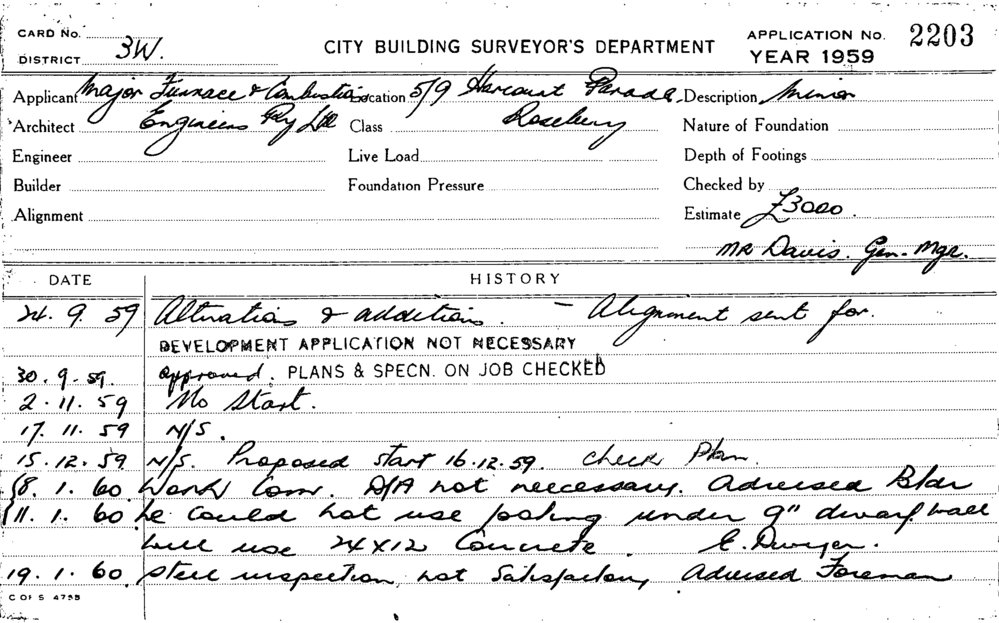 CARD No.
DISTRICT 3W.
CITY BUILDING SURVEYOR'S DEPARTMENT
APPLICATION No. 2203
YEAR 1959
Applicant Major Furnace & Combustion Location 5/9 Harcourt Parade. Description Minor
Architect Engineers Pty Ltd Class Rosebery Nature of Foundation
Engineer Live Load Depth of Footings
Builder Foundation Pressure Checked by
Alignment Estimate £3000.
MR Davis. Gen. Mgr.
DATE HISTORY
24. 9. 59 Alterations & additions. - Alignment sent for.
DEVELOPMENT APPLICATION NOT NECESSARY
30. 9. 59. approved. PLANS & SPECN. ON JOB CHECKED
2. 11. 59 No Start.
17. 11. 59 N/S.
15. 12. 59 N/S. Proposed start 16.12.59. check Plan.
8. 1. 60. Work Com. D/A not neccessary. Advised Bldr
11. 1. 60 he could not use footing under 9" dwarf wall
will use 24x12 Concrete. E. Dwyer.
19. 1. 60. Steel inspection, not Satisfactory Advised Foreman
C OF S 475B